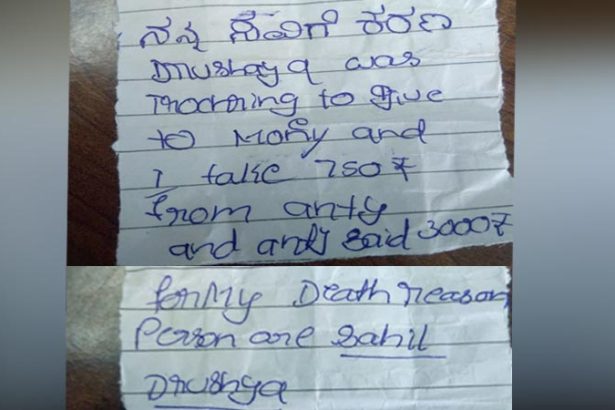 ನನ್ನ ಸಾವಿಗೆ ಕರಣ
Drushya was
to give
to Money and
I take 750₹
from anty
and anty said 3000₹
for My Death reason
Person are Sahil
Drushya